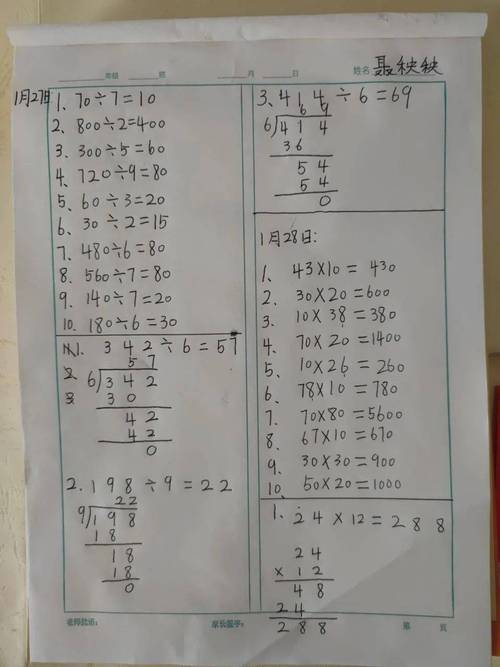 年级 班 月 日 姓名 聂秧秧
1月27日
1、70÷7=10
2、800÷2=400
3、300÷5=60
4、720÷9=80
5、60÷3=20
6、30÷2=15
7、480÷6=80
8、560÷7=80
9、140÷7=20
10、180÷6=30
1、342÷6=57
57
6)342
30
42
42
0
2、198÷9=22
22
9)198
18
18
18
0
3、414÷6=69
69
6)414
36
54
54
0
1月28日:
1、43×10=430
2、30×20=600
3、10×38=380
4、70×20=1400
5、10×26=260
6、78×10=780
7、70×80=5600
8、67×10=670
9、30×30=900
10、50×20=1000
1、24×12=288
24
×12
48
24
288
老师批语: 家长签字: 第 页